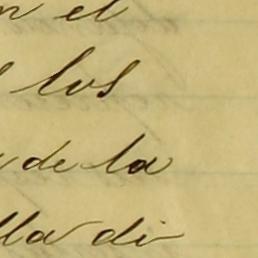 n el
los
de la
lla di